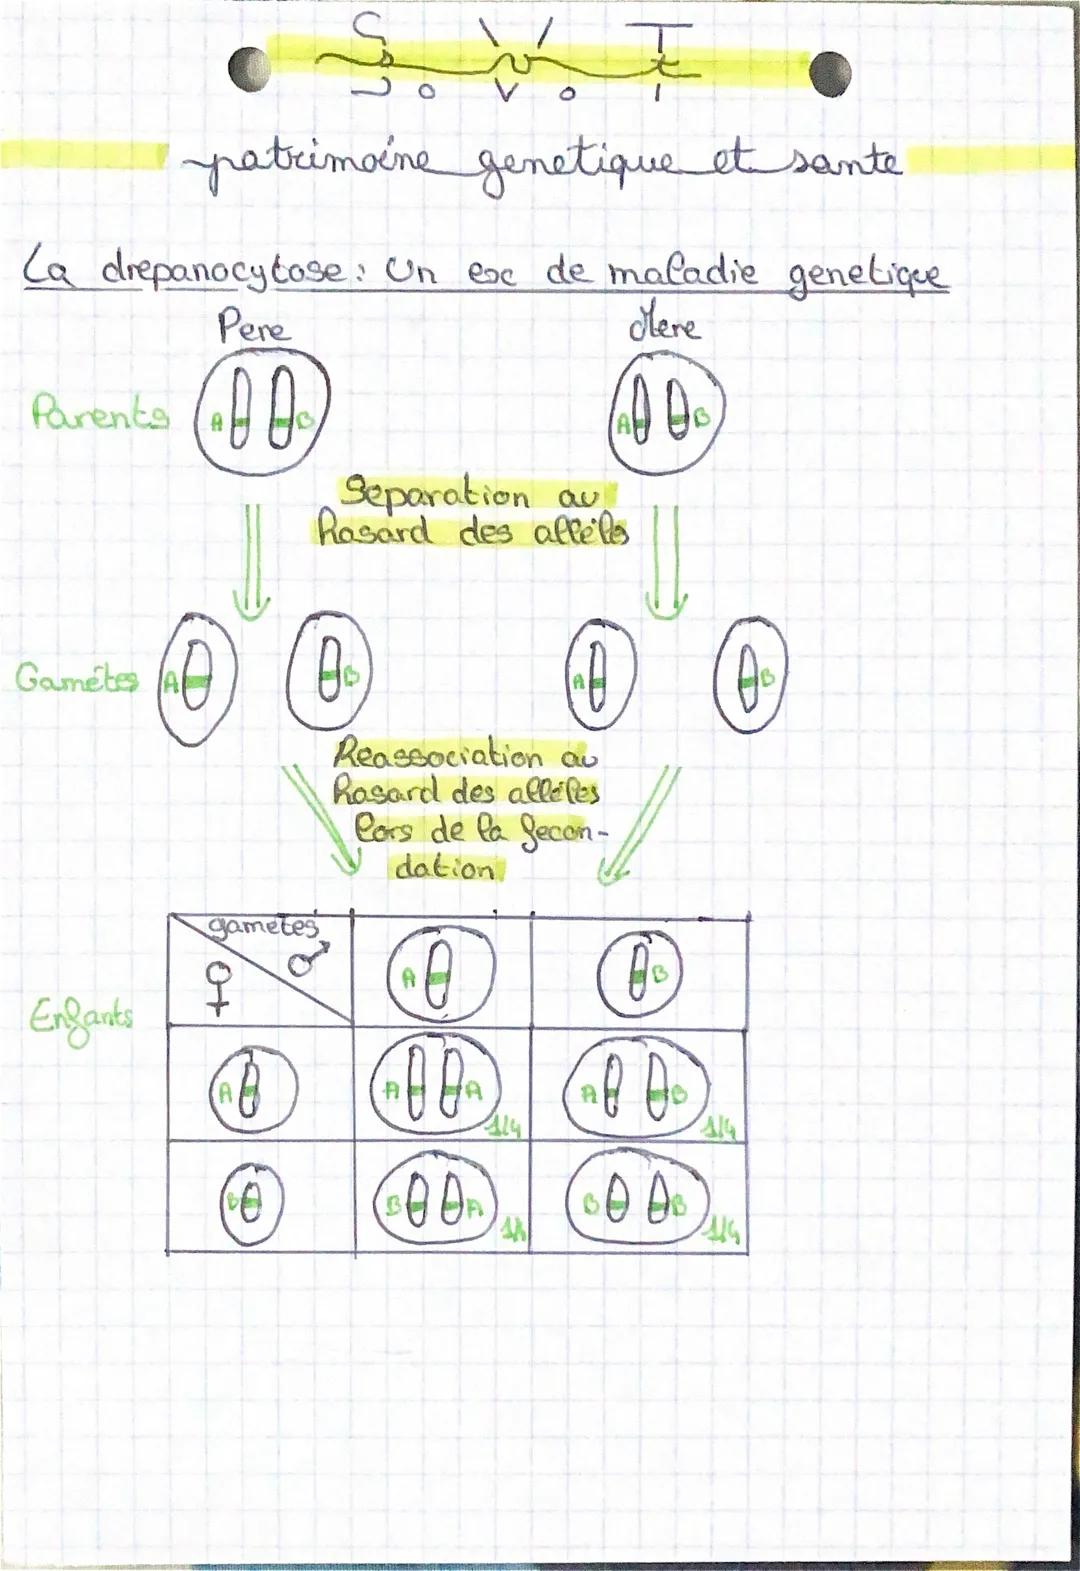 S V T
patrimoine genetique et sante
La drepanocytose : Un ex de maladie genetique
Pere Mere
Parents A B A B
Separation au
hasard des allèles
Gamétes A B A B
Reassociation au
hasard des alléles
lors de la fecon-
dation
gametes ♂ A B
♀
Enfants
A A A 1/4 A B 1/4
B B A 1/4 B B 1/4